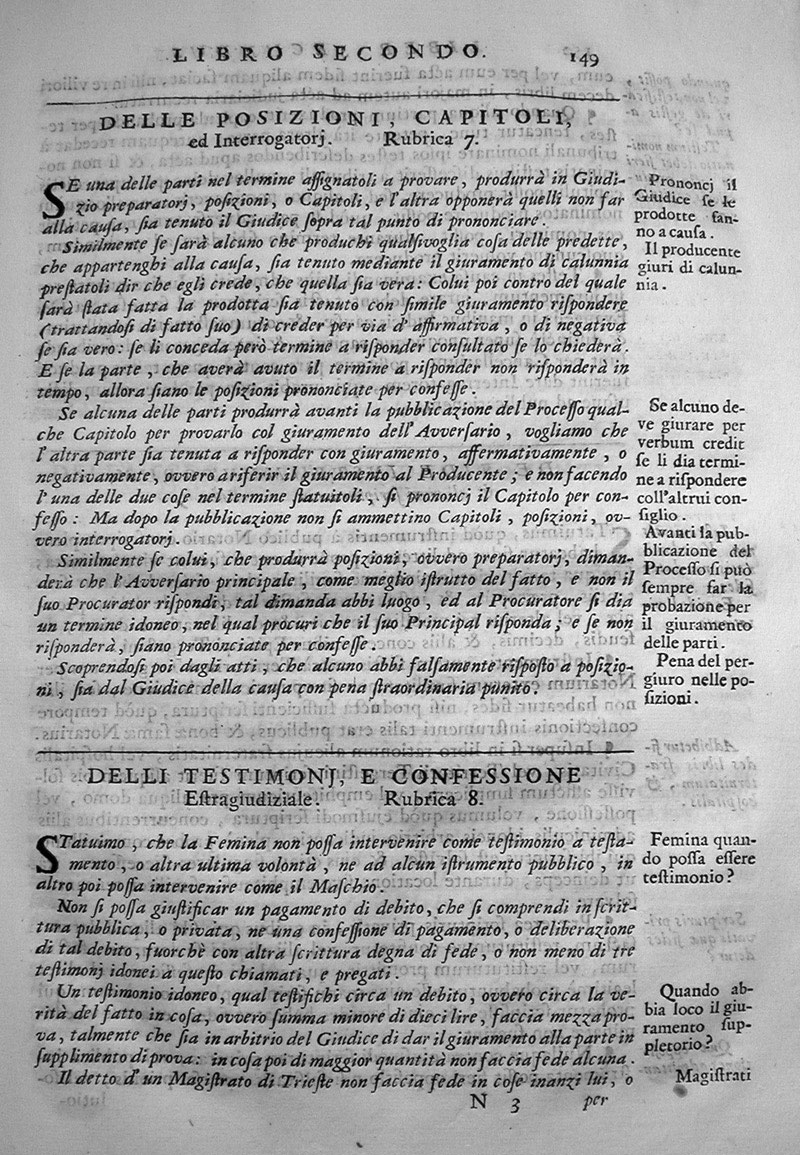 LIBRO SECONDO. 149
DELLE POSIZIONI, CAPITOLI,
ed Interrogatorj. Rubrica 7.
SE una delle parti nel termine aſſignatoli a provare, produrrà in Giudi-
zio preparatorj, poſizioni, o Capitoli, e l'altra opponerà quelli non far
alla cauſa, ſia tenuto il Giudice ſopra tal punto di prononciare.
Prononcj il
Giudice ſe le
prodotte fan-
no a cauſa.
Similmente ſe ſarà alcuno che produchi qualſivoglia coſa delle predette,
che appartenghi alla cauſa, ſia tenuto mediante il giuramento di calunnia
preſtatoli dir che egli crede, che quella ſia vera: Colui poi contro del quale
ſarà ſtata fatta la prodotta ſia tenuto con ſimile giuramento riſpondere
(trattandoſi di fatto ſuo) di creder per via d' affirmativa, o di negativa
ſe ſia vero: ſe li conceda però termine a riſponder conſultato ſe lo chiederà.
E ſe la parte, che averà avuto il termine a riſponder non riſponderà in
tempo, allora ſiano le poſizioni prononciate per confeſſe.
Il producente
giuri di calun-
nia.
Se alcuna delle parti produrrà avanti la pubblicazione del Proceſſo qual-
che Capitolo per provarlo col giuramento dell' Avverſario, vogliamo che
l' altra parte ſia tenuta a riſponder con giuramento, affermativamente, o
negativamente, ovvero a riferir il giuramento al Producente; e non facendo
l' una delle due coſe nel termine ſtatuitoli, ſi prononcj il Capitolo per con-
feſſo: Ma dopo la pubblicazione non ſi ammettino Capitoli, poſizioni, ov-
vero interrogatorj.
Se alcuno de-
ve giurare per
verbum credit
ſe li dia termi-
ne a riſpondere
coll'altrui con-
ſiglio.
Similmente ſe colui, che produrrà poſizioni, ovvero preparatorj, diman-
derà che l' Avverſario principale, come meglio iſtrutto del fatto, e non il
ſuo Procurator riſpondi, tal dimanda abbi luogo, ed al Procuratore ſi dia
un termine idoneo, nel qual procuri che il ſuo Principal riſponda; e ſe non
riſponderà, ſiano prononciate per confeſſe.
Avanti la pub-
blicazione del
Proceſſo ſi può
ſempre far la
probazione per
il giuramento
delle parti.
Scoprendoſi poi dagli atti, che alcuno abbi falſamente riſpoſto a poſizio-
ni, ſia dal Giudice della cauſa con pena ſtraordinaria punito.
Pena del per-
giuro nelle po-
ſizioni.
DELLI TESTIMONJ, E CONFESSIONE
Eſtragiudiziale. Rubrica 8.
STatuimo, che la Femina non poſſa intervenire come teſtimonio a teſta-
mento, o altra ultima volontà, ne ad alcun iſtrumento pubblico, in
altro poi poſſa intervenire come il Maſchio.
Femina quan-
do poſſa eſſere
teſtimonio?
Non ſi poſſa giuſtificar un pagamento di debito, che ſi comprendi in ſcrit-
tura pubblica, o privata, ne una confeſſione di pagamento, o deliberazione
di tal debito, fuorchè con altra ſcrittura degna di fede, o non meno di tre
teſtimonj idonei a queſto chiamati, e pregati.
Un teſtimonio idoneo, qual teſtifichi circa un debito, ovvero circa la ve-
rità del fatto in coſa, ovvero ſumma minore di dieci lire, faccia mezza pro-
va, talmente che ſia in arbitrio del Giudice di dar il giuramento alla parte in
ſupplimento di prova: in coſa poi di maggior quantità non faccia fede alcuna.
Quando ab-
bia loco il giu-
ramento ſup-
pletorio?
Il detto d' un Magiſtrato di Trieſte non faccia fede in coſe inanzi lui, o
Magiſtrati
N 3 per